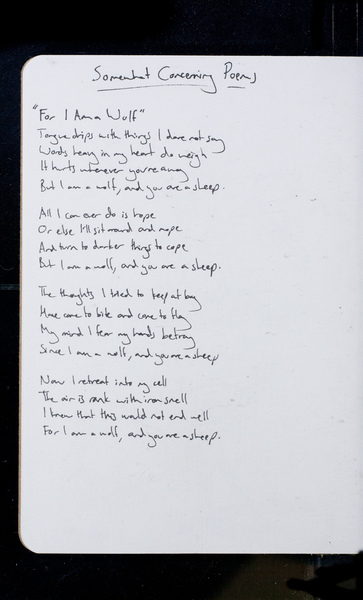 Somewhat Concerning Poems
"For I Am a Wolf"
Tongue drips with things I dare not say
Words heavy in my heart do weigh
It hurts whenever you're away
But I am a wolf, and you are a sheep.
All I can ever do is hope
Or else I'll sit around and mope
And turn to darker things to cope
But I am a wolf, and you are a sheep.
The thoughts I tried to keep at bay
Have come to bite and come to flay
My mind I fear my hands betray
Since I am a wolf, and you are a sheep
Now I retreat into my cell
The air is rank with iron smell
I knew that this would not end well
For I am a wolf, and you are a sheep.